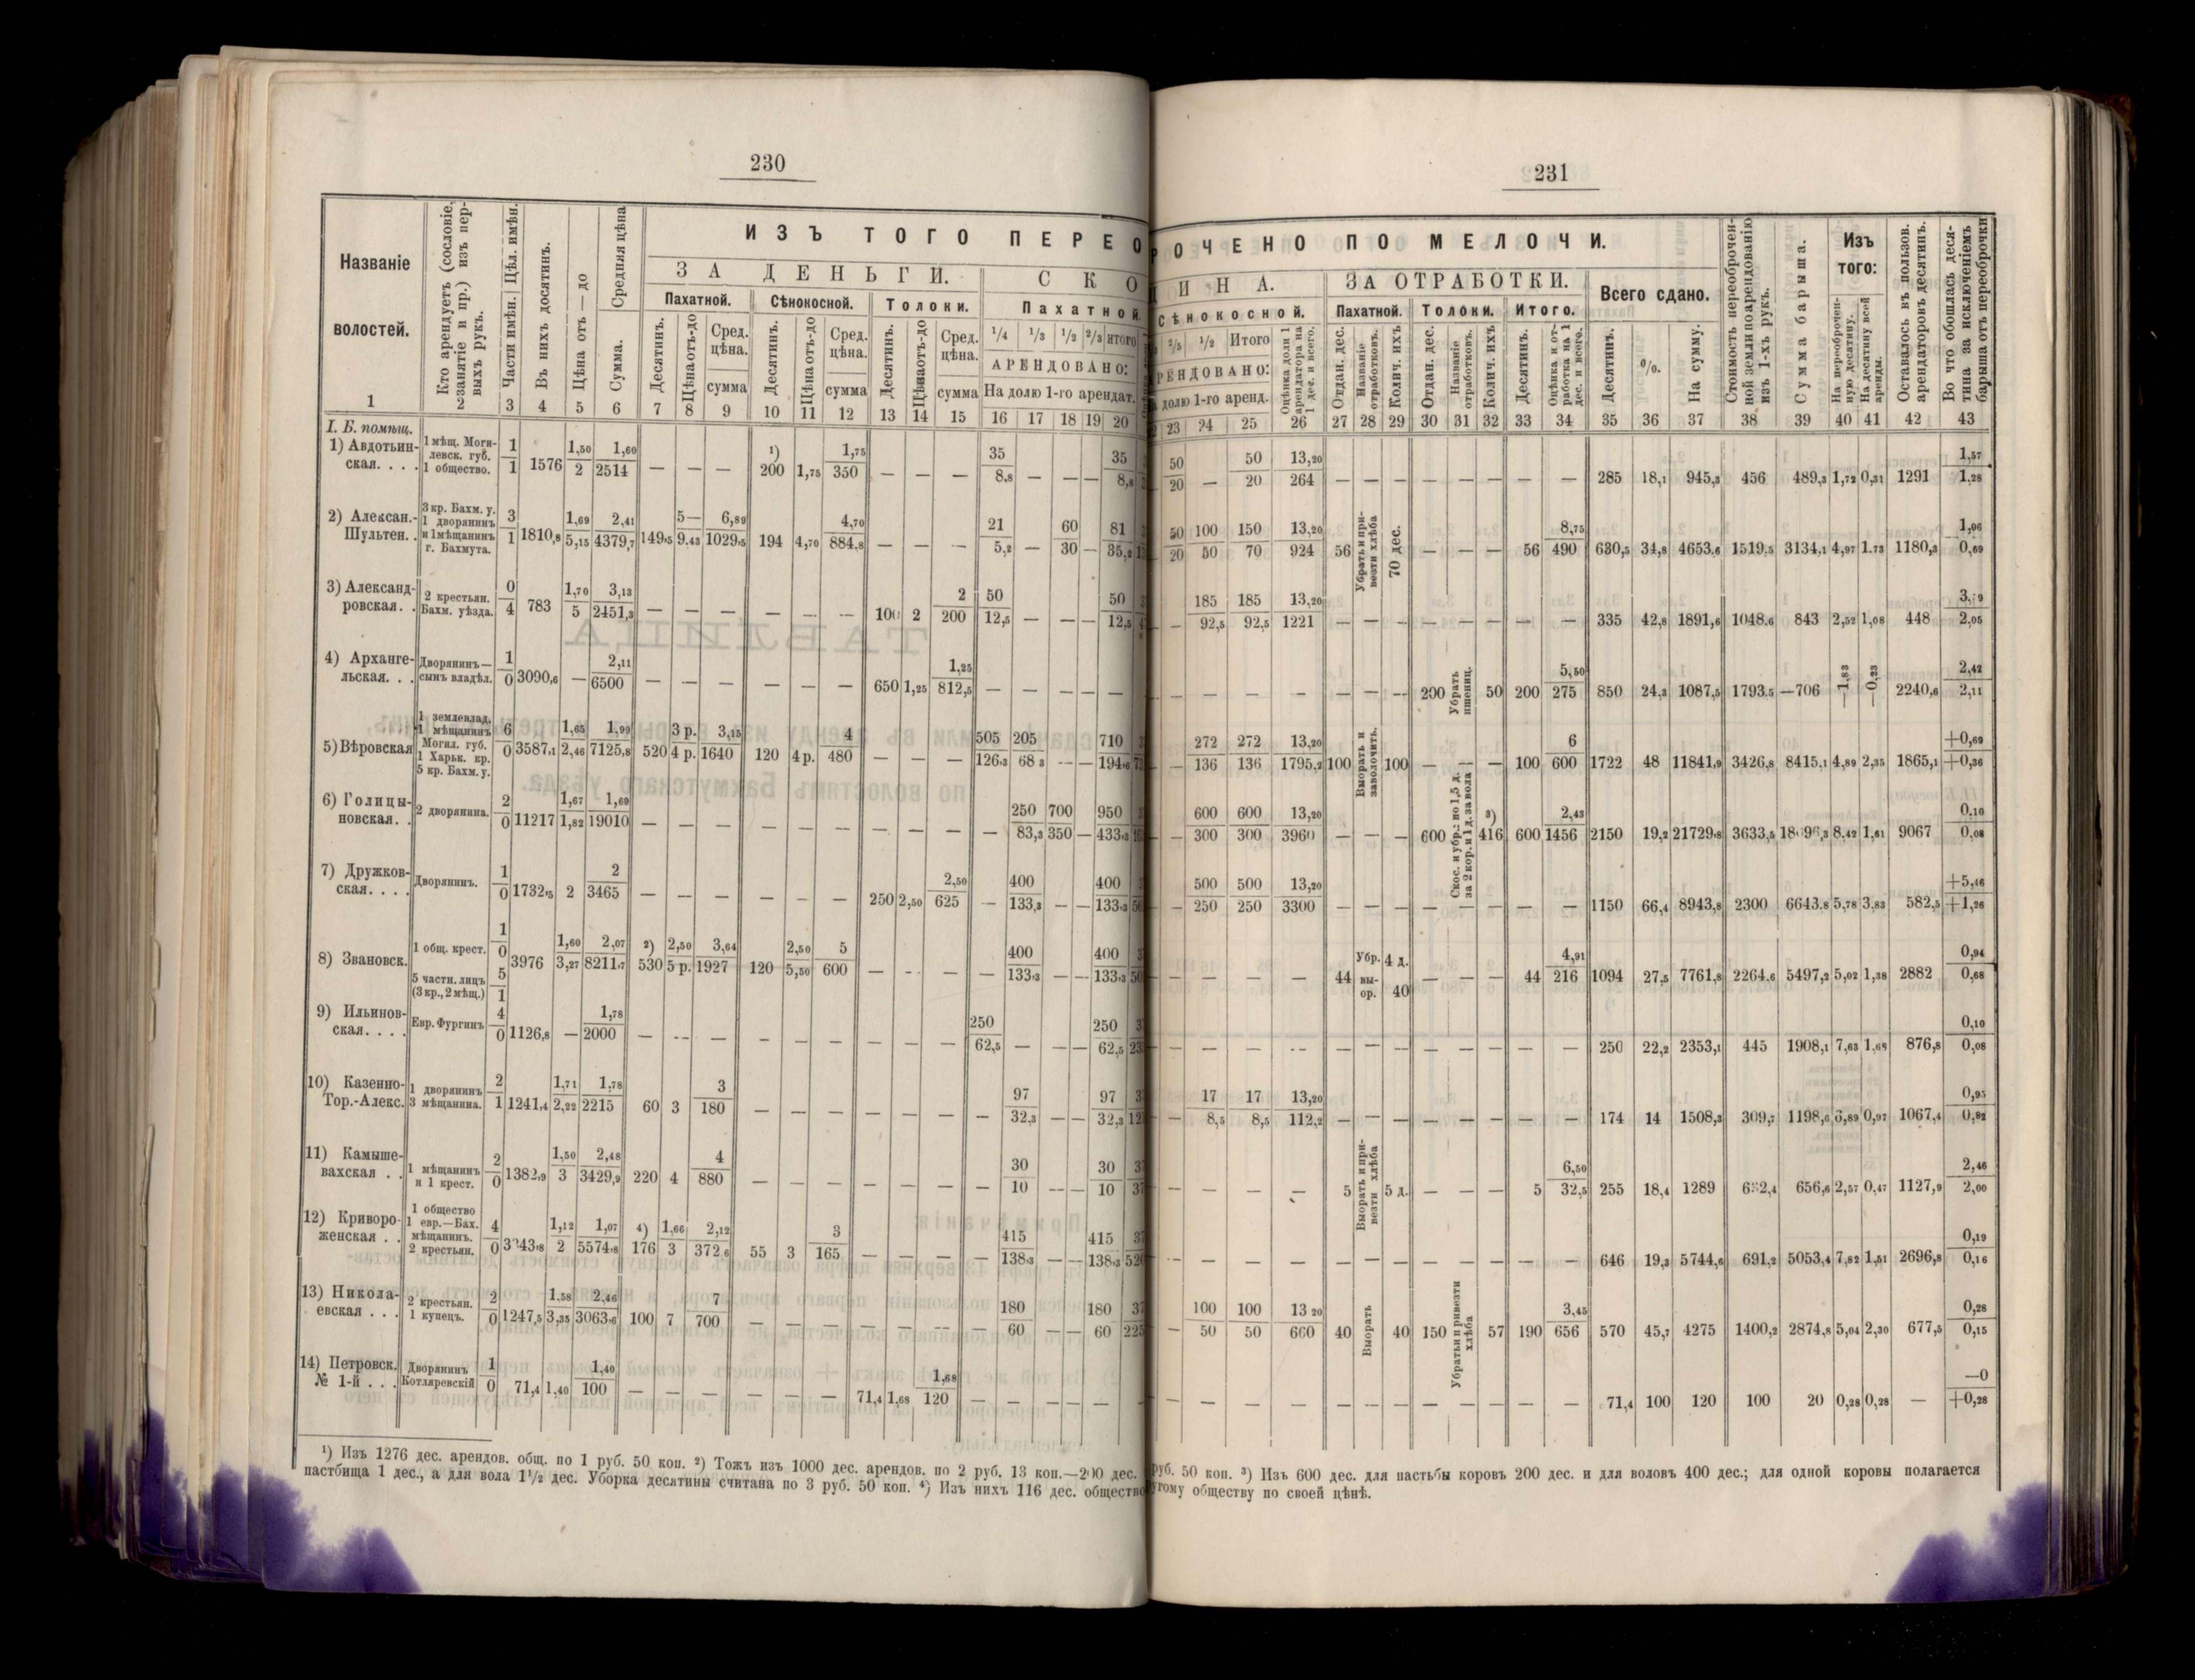 230
231
ИЗЪ ТОГО ПЕРЕО
РОЧЕНО ПО МЕЛОЧИ.
Названіе
волостей.
Кто арендуетъ (сословіе, занятіе и пр.) изъ первыхъ рукъ.
Части имѣн. | Цѣл. имѣн.
Въ нихъ досятинъ.
Цѣна отъ — до
Средняя цѣна
Сумма.
ЗА ДЕНЬГИ.
СКО
Пахатной. Сѣнокосной. Толоки. Пахатной.
Десятинъ. Цѣна отъ-до Сред. цѣна. сумма
Десятинъ. Цѣна отъ-до Сред. цѣна. сумма
Десятинъ. Цѣна отъ-до Сред. цѣна. сумма
1/4 1/3 1/2 2/3 итого
АРЕНДОВАНО:
На долю 1-го арендат.
1 2 3 4 5 6 7 8 9 10 11 12 13 14 15 16 17 18 19 20
ИНА. ЗА ОТРАБОТКИ.
Сѣнокосной. Пахатной. Толоки. Итого.
2/3 1/2 Итого
РЕНДОВАНО:
долю 1-го аренд.
Оцѣнка доли 1 арендатора на 1 дес. и всего.
Отдан. дес. Названіе отработковъ. Колич. ихъ
Отдан. дес. Названіе отработковъ. Колич. ихъ
Десятинъ. Оцѣнка и отработка на 1 дес. и всего.
Всего сдано.
Десятинъ. %. На сумму.
Стоимость переоброченной земли по арендованію изъ 1-хъ рукъ.
Сумма барыша.
Изъ того:
На переоброченную десятину.
На десятину всей аренды.
Оставалось въ пользов. арендаторовъ десятинъ.
Во что обошлась десятина за исключеніемъ барыша отъ переоброчки
23 24 25 26 27 28 29 30 31 32 33 34 35 36 37 38 39 40 41 42 43
I. Б. помѣщ.
1) Авдотьинская. . . . 1 мѣщ. Могилевск. губ. 1 общество. 1/1 1576 1,50/2 1,60/2514 — — — ¹) 200 1,75 1,75/350 — — — 35/8,8 — — — 35/8,8
50/20 — 50/20 13,20/264 — — — — — — — — 285 18,1 945,3 456 489,3 1,72 0,31 1291 1,57/1,28
2) Алексан.-Шультен. . 3 кр. Бахм. у. 1 дворянинъ и 1 мѣщанинъ г. Бахмута. 3/1 1810,8 1,69/5,15 2,41/4379,7 149,5 5—/9,43 6,89/1029,5 194 4,70 4,70/884,8 — — — 21/5,2 — 60/30 — 81/35,2
50/20 100/50 150/70 13,20/924 56 Убрать и привезти хлѣба 70 дес. — — — 56 8,75/490 630,5 34,8 4653,6 1519,5 3134,1 4,97 1,73 1180,3 1,06/0,69
3) Александровская. . 2 крестьян. Бахм. уѣзда. 0/4 783 1,70/5 3,13/2451,3 — — — — — — 100 2 2/200 50/12,5 — — — 50/12,5
— 185/92,5 185/92,5 13,20/1221 — — — — — — — — 335 42,8 1891,6 1048,6 843 2,52 1,08 448 2,05
4) Архангельская. . . Дворянинъ—сынъ владѣл. 1/0 3090,6 — 2,11/6500 — — — — — — 650 1,25 1,25/812,5 — — — — —
— — — — — — — 200 Убрать пшениц. 50 200 5,50/275 850 24,3 1087,5 1793,5 —706 —1,83 —0,23 2240,6 2,42/2,11
5) Вѣровская 1 землевлад. 1 мѣщанинъ Могил. губ. 1 Харьк. кр. 5 кр. Бахм. у. 6/0 3587,1 1,65/2,46 1,99/7125,8 520 3 р./4 р. 3,15/1640 120 4 р. 4/480 — — — 505/126,3 205/68,3 — — 710/194,6
— 272/136 272/136 13,20/1795,2 100 Выорать и заволочить. 100 — — — 100 6/600 1722 48 11841,9 3426,8 8415,1 4,89 2,35 1865,1 +0,69/+0,36
6) Голицыновская. . 2 дворянина. 2/0 11217 1,67/1,82 1,69/19010 — — — — — — — — — — 250/83,3 700/350 — 950/433,3
— 600/300 600/300 13,20/3960 — — — 600 Скос. и убр.: по 1,5 д. за 2 кор. и 1 д. за вола ³) 416 600 2,43/1456 2150 19,2 21729,8 3633,5 8,42 1,61 9067 0,10/0,08
7) Дружковская. . . . Дворянинъ. 1/0 1732,5 2 2/3465 — — — — — — 250 2,50 2,50/625 — 400/133,3 — — 400/133,3
— 500/250 500/250 13,20/3300 — — — — — — — — 1150 66,4 8943,8 2300 6643,8 5,78 3,83 582,5 +5,46/+1,26
8) Звановск. 1 общ. крест. 1/0 5 частн. лицъ (3 кр., 2 мѣщ.) 5/1 3976 1,60/3,27 2,07/8211,7 ²) 530 2,50/5 р. 3,64/1927 120 2,50/5,50 5/600 — — — — 400/133,3 — — 400/133,3
— — — — 44 Убр. выор. 4 д. 40 — — 44 4,91/216 1094 27,5 7761,8 2264,6 5497,2 5,02 1,38 2882 0,94/0,68
9) Ильиновская. . . . Евр. Фургинъ 4/0 1126,8 — 1,78/2000 — — — — — — — — — 250/62,5 — — — 250/62,5
— — — — — — — — — — — — 250 22,2 2353,1 445 1908,1 7,63 876,8 0,10/0,08
10) Казенно-Тор.-Алекс. 1 дворянинъ 3 мѣщанина. 2/1 1241,4 1,71/2,22 1,78/2215 60 3 3/180 — — — — — — — 97/32,3 — — 97/32,3
— 17/8,5 17/8,5 13,20/112,2 — — — — — — — — 174 14 1508,3 309,7 1198,6 6,89 0,97 1067,4 0,95/0,82
11) Камышевахская . . 1 мѣщанинъ и 1 крест. 2/0 1382,9 1,50/3 2,48/3429,9 220 4 4/880 — — — — — — — 30/10 — — 30/10
— — — — 5 Выорать и привезти хлѣба 5 д. — — — 5 6,50/32,5 255 18,4 1289 656,6 2,57 0,47 1127,9 2,46/2,00
12) Криворожeнская . . 1 общество 1 евр.—Бах. мѣщанинъ. 2 крестьян. 4/0 1,12/2 1,07/5574,8 ⁴) 176 1,66/3 2,12/372,6 55 3 3/165 — — — — 415/138,3 — — 415/138,3
— — — — — — — — — — — — 646 19,3 5744,6 691,2 5053,4 7,82 1,51 2696,8 0,19/0,16
13) Николаевская . . . 2 крестьян. 1 купецъ. 2/0 1247,5 1,58/3,35 2,46/3063,6 100 7 7/700 — — — — — — — 180/60 — — 180/60
— 100/50 100/50 13,20/660 40 Выорать 40 150 Убрать и привезти хлѣба 57 190 3,45/656 570 45,7 4275 1400,2 2874,8 5,04 2,30 677,5 0,28/0,15
14) Петровск. № 1-й . . . Дворянинъ Котляревскій 1/0 71,4 1,40 1,40/100 — — — — — — 71,4 1,68 1,68/120 — — — — —
— — — — — — — — — — — — 71,4 100 120 100 20 0,28 0,28 — —0/+0,28
¹) Изъ 1276 дес. арендов. общ. по 1 руб. 50 коп. ²) Тожъ изъ 1000 дес. арендов. по 2 руб. 13 коп.—200 дес. руб. 50 коп. ³) Изъ 600 дес. для пастьбы коровъ 200 дес. и для воловъ 400 дес.; для одной коровы полагается
пастбища 1 дес., а для вола 1½ дес. Уборка десятины считана по 3 руб. 50 коп. ⁴) Изъ нихъ 116 дес. общество угому обществу по своей цѣнѣ.